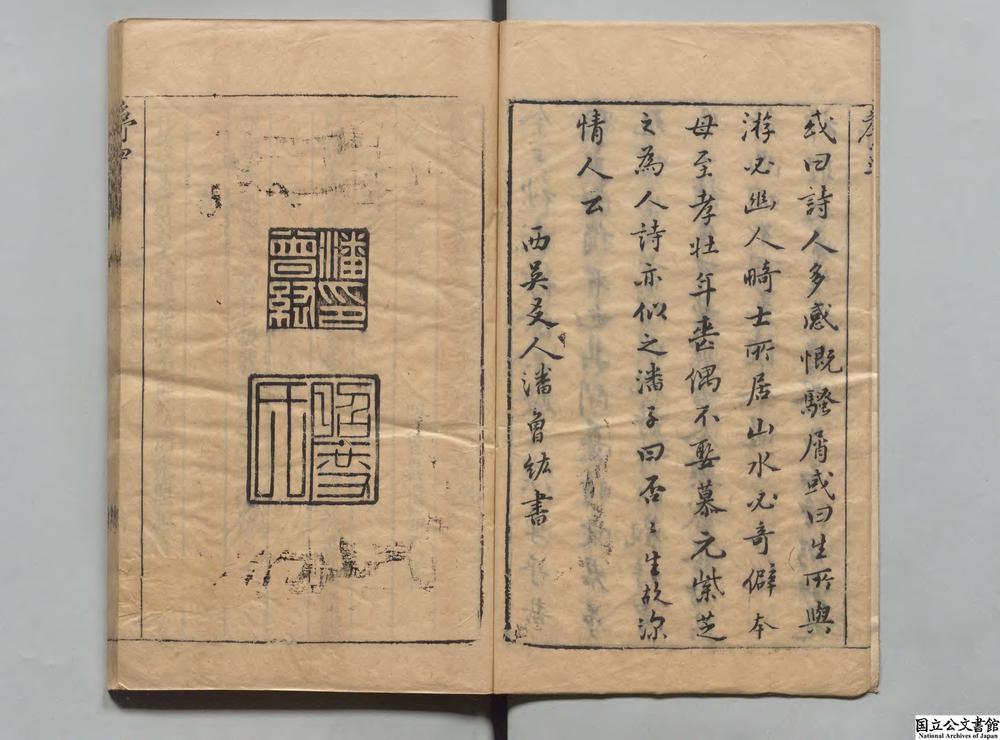 或曰詩人多感慨騷屑或曰生所與
游必幽人畸士所居山水必奇僻本
母至孝壯年喪偶不娶慕元紫芝
之為人詩亦似之潘子曰否〻生故深
情人云
西吳友人潘曾紘書
潘印曾紘
序四
国立公文書館
National Archives of Japan